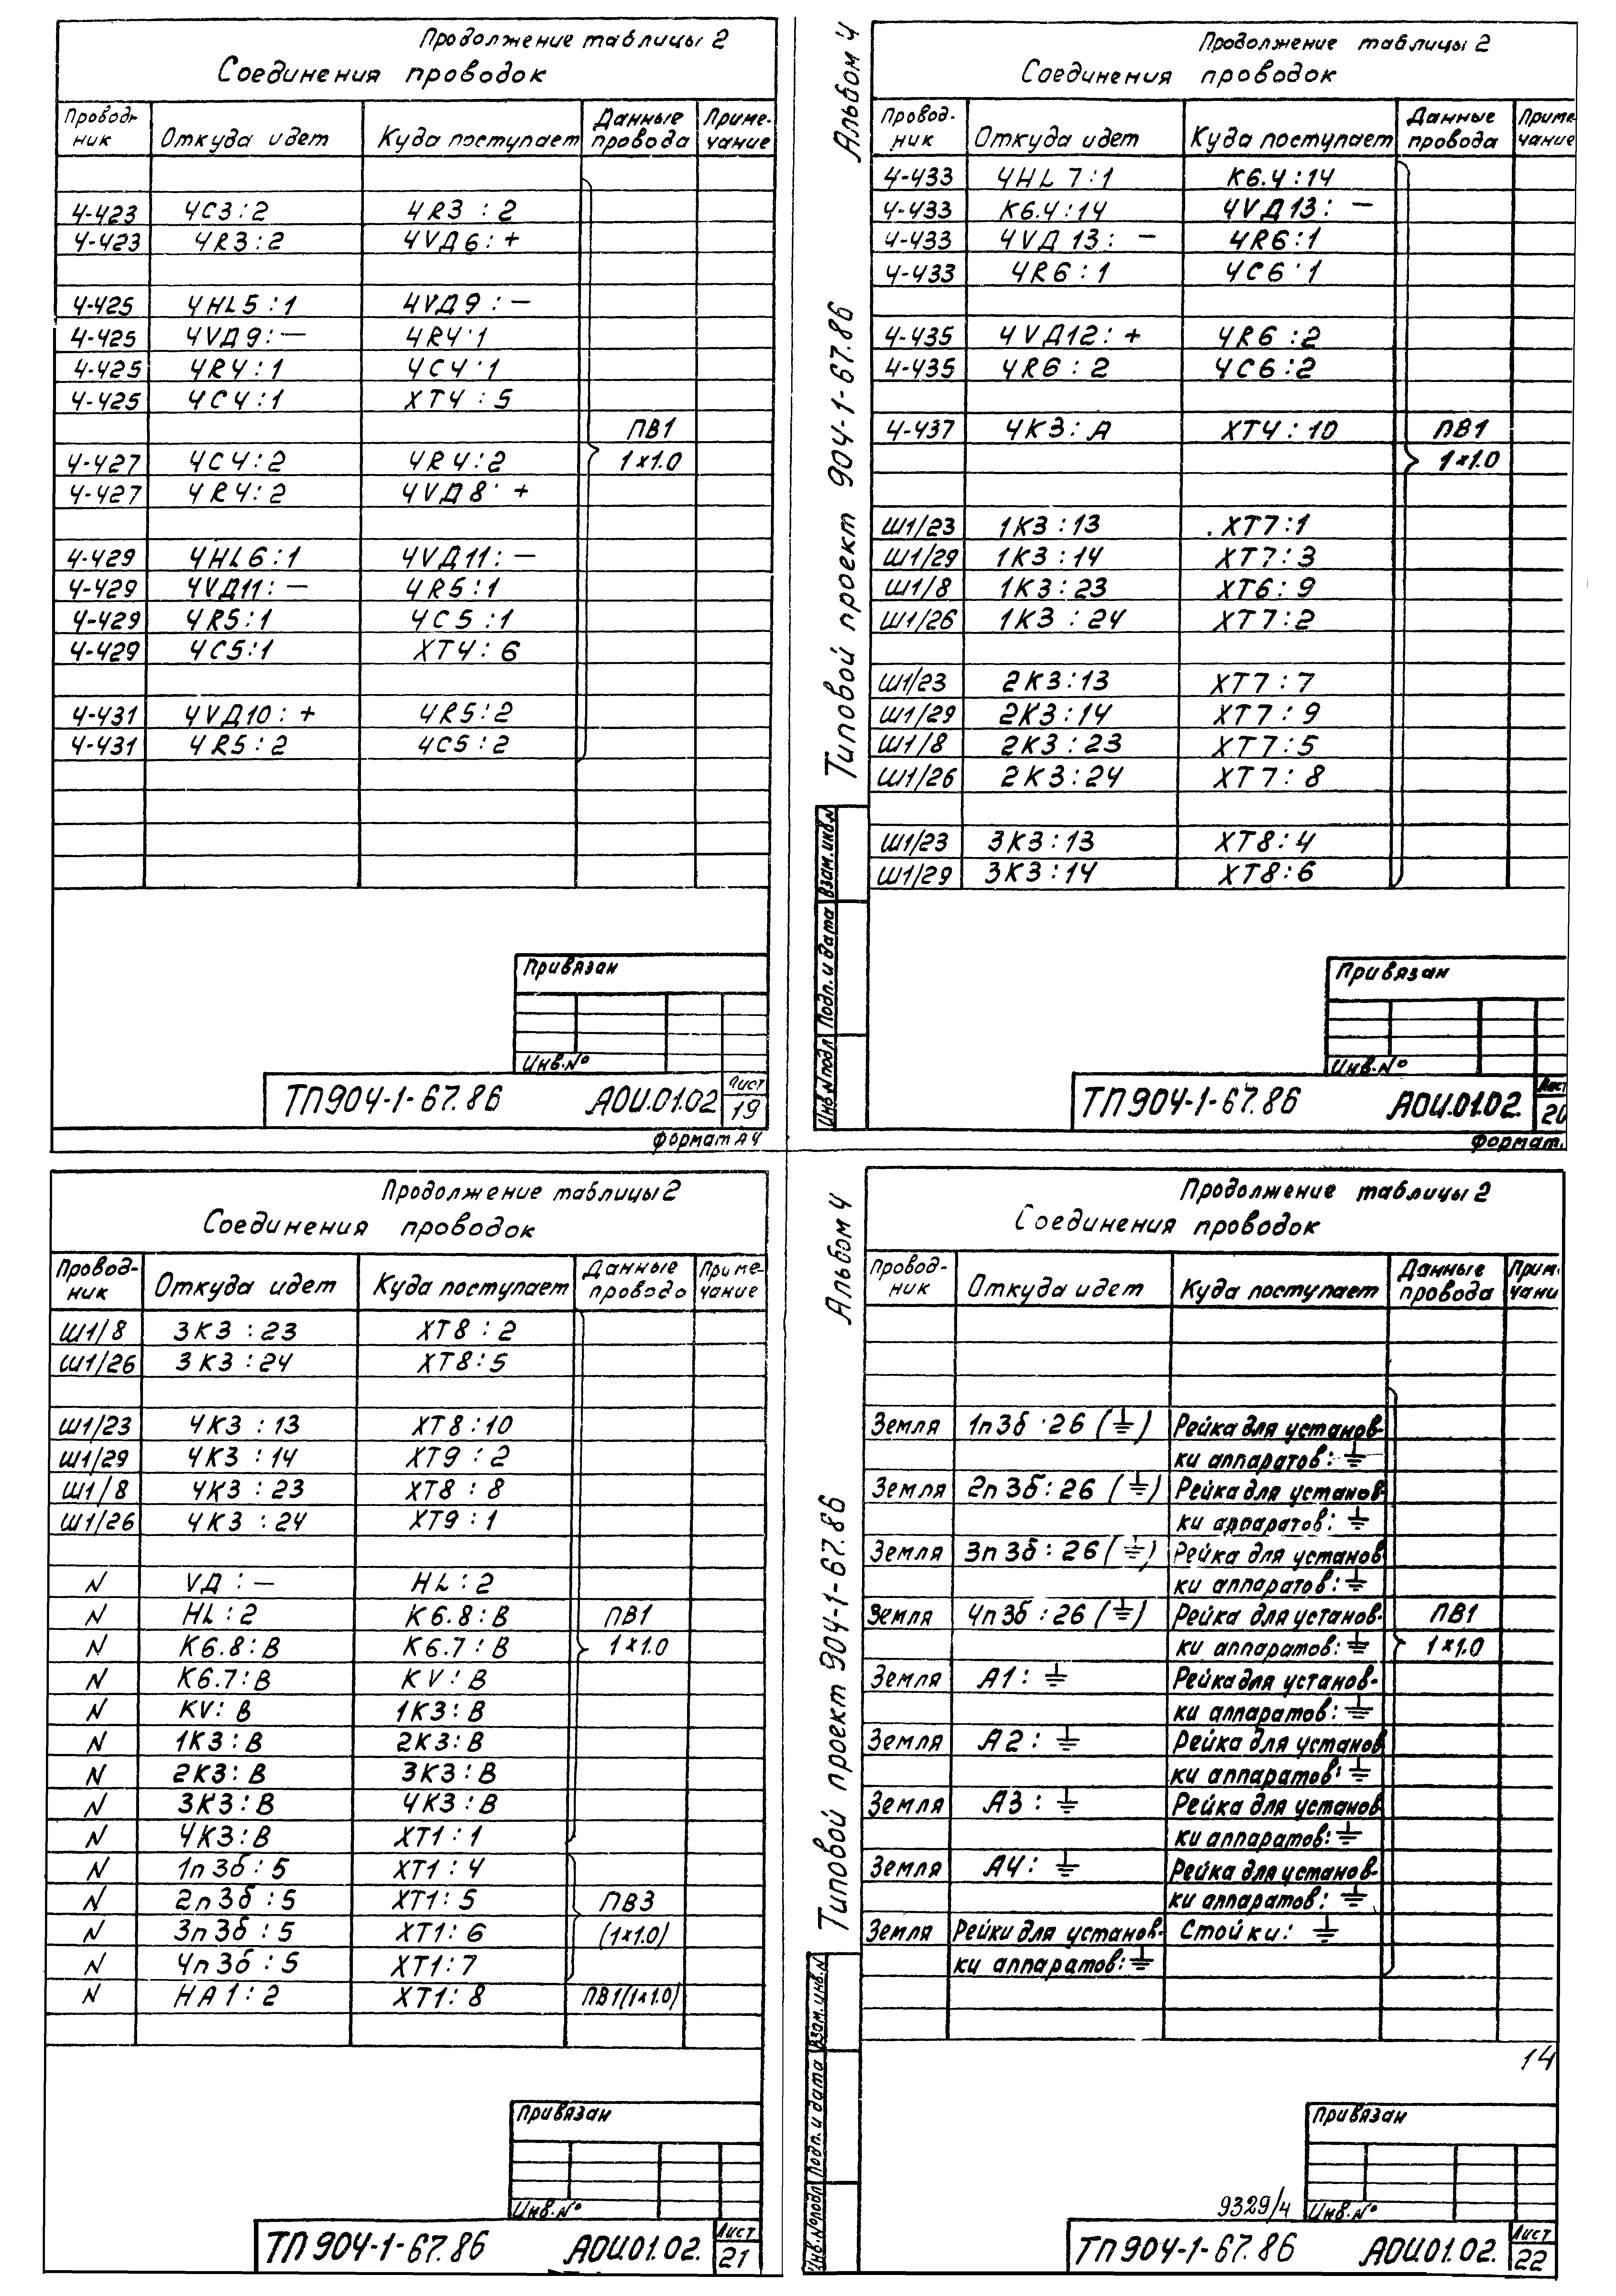 Продолжение таблицы 2
Соединения проводок
Проводник Откуда идет Куда поступает Данные провода Примечание
4-423 4C3:2 4R3:2
4-423 4R3:2 4VД6:+
4-425 4HL5:1 4VД9:—
4-425 4VД9:— 4R4:1
4-425 4R4:1 4C4:1
4-425 4C4:1 XT4:5
ПВ1
4-427 4C4:2 4R4:2 1×1.0
4-427 4R4:2 4VД8:+
4-429 4HL6:1 4VД11:—
4-429 4VД11:— 4R5:1
4-429 4R5:1 4C5:1
4-429 4C5:1 XT4:6
4-431 4VД10:+ 4R5:2
4-431 4R5:2 4C5:2
Привязан
Инв.№
ТП904-1-67.86 АОИ.01.02 Лист 19
формат А4
Альбом 4
Типовой проект 904-1-67.86
Продолжение таблицы 2
Соединения проводок
Провод-ник Откуда идет Куда поступает Данные провода Приме-чание
4-433 4HL7:1 K6.4:14
4-433 K6.4:14 4VД13:—
4-433 4VД13:— 4R6:1
4-433 4R6:1 4C6:1
4-435 4VД12:+ 4R6:2
4-435 4R6:2 4C6:2
4-437 4K3:A XT4:10 ПВ1
1×1.0
Ш1/23 1K3:13 XT7:1
Ш1/29 1K3:14 XT7:3
Ш1/8 1K3:23 XT6:9
Ш1/26 1K3:24 XT7:2
Ш1/23 2K3:13 XT7:7
Ш1/29 2K3:14 XT7:9
Ш1/8 2K3:23 XT7:5
Ш1/26 2K3:24 XT7:8
Ш1/23 3K3:13 XT8:4
Ш1/29 3K3:14 XT8:6
Инв.№подл Подп. и дата Взам.инв.№
Привязан
Инв.№
ТП904-1-67.86 АОИ.01.02. Лист 20
формат.
Продолжение таблицы 2
Соединения проводок
Провод-ник Откуда идет Куда поступает Данные провода Приме-чание
Ш1/8 3K3:23 XT8:2
Ш1/26 3K3:24 XT8:5
Ш1/23 4K3:13 XT8:10
Ш1/29 4K3:14 XT9:2
Ш1/8 4K3:23 XT8:8
Ш1/26 4K3:24 XT9:1
N VД:— HL:2
N HL:2 K6.8:B ПВ1
N K6.8:B K6.7:B 1×1.0
N K6.7:B KV:B
N KV:B 1K3:B
N 1K3:B 2K3:B
N 2K3:B 3K3:B
N 3K3:B 4K3:B
N 4K3:B XT1:1
N 1п3б:5 XT1:4
N 2п3б:5 XT1:5 ПВ3
N 3п3б:5 XT1:6 (1×1.0)
N 4п3б:5 XT1:7
N HA1:2 XT1:8 ПВ1(1×1.0)
Привязан
Инв.№
ТП904-1-67.86 АОИ.01.02. Лист 21
Альбом 4
Типовой проект 904-1-67.86
Продолжение таблицы 2
Соединения проводок
Провод-ник Откуда идет Куда поступает Данные провода Прим. чани
Земля 1п3б:26 (⏚) Рейка для установ-
ки аппаратов: ⏚
Земля 2п3б:26 (⏚) Рейка для установ-
ки аппаратов: ⏚
Земля 3п3б:26 (⏚) Рейка для установ
ки аппаратов: ⏚
Земля 4п3б:26 (⏚) Рейка для установ- ПВ1
ки аппаратов: ⏚ 1×1.0
Земля А1: ⏚ Рейка для установ-
ки аппаратов: ⏚
Земля А2: ⏚ Рейка для установ
ки аппаратов: ⏚
Земля А3: ⏚ Рейка для установ
ки аппаратов: ⏚
Земля А4: ⏚ Рейка для установ-
ки аппаратов: ⏚
Земля Рейки для установ- Стойки: ⏚
ки аппаратов: ⏚
14
Инв.№подл Подп. и дата Взам.инв.№
Привязан
9329/4 Инв.№
ТП904-1-67.86 АОИ.01.02. Лист 22